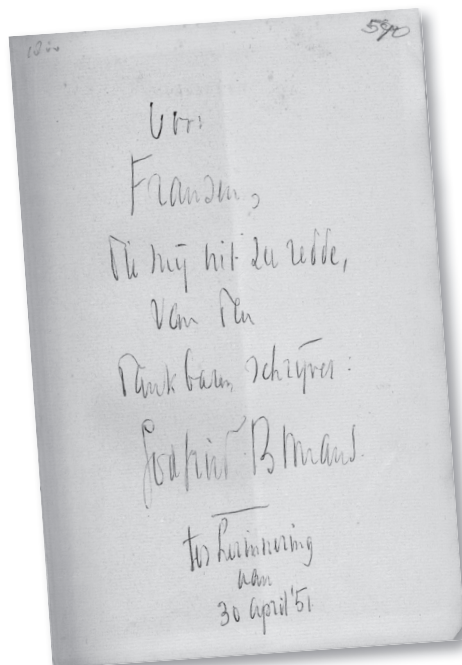 590
Voor
Fransen,
die mij uit de redde,
van den
dankbaren schrijver:
Bomans.
ter herinnering
aan
30 april '51